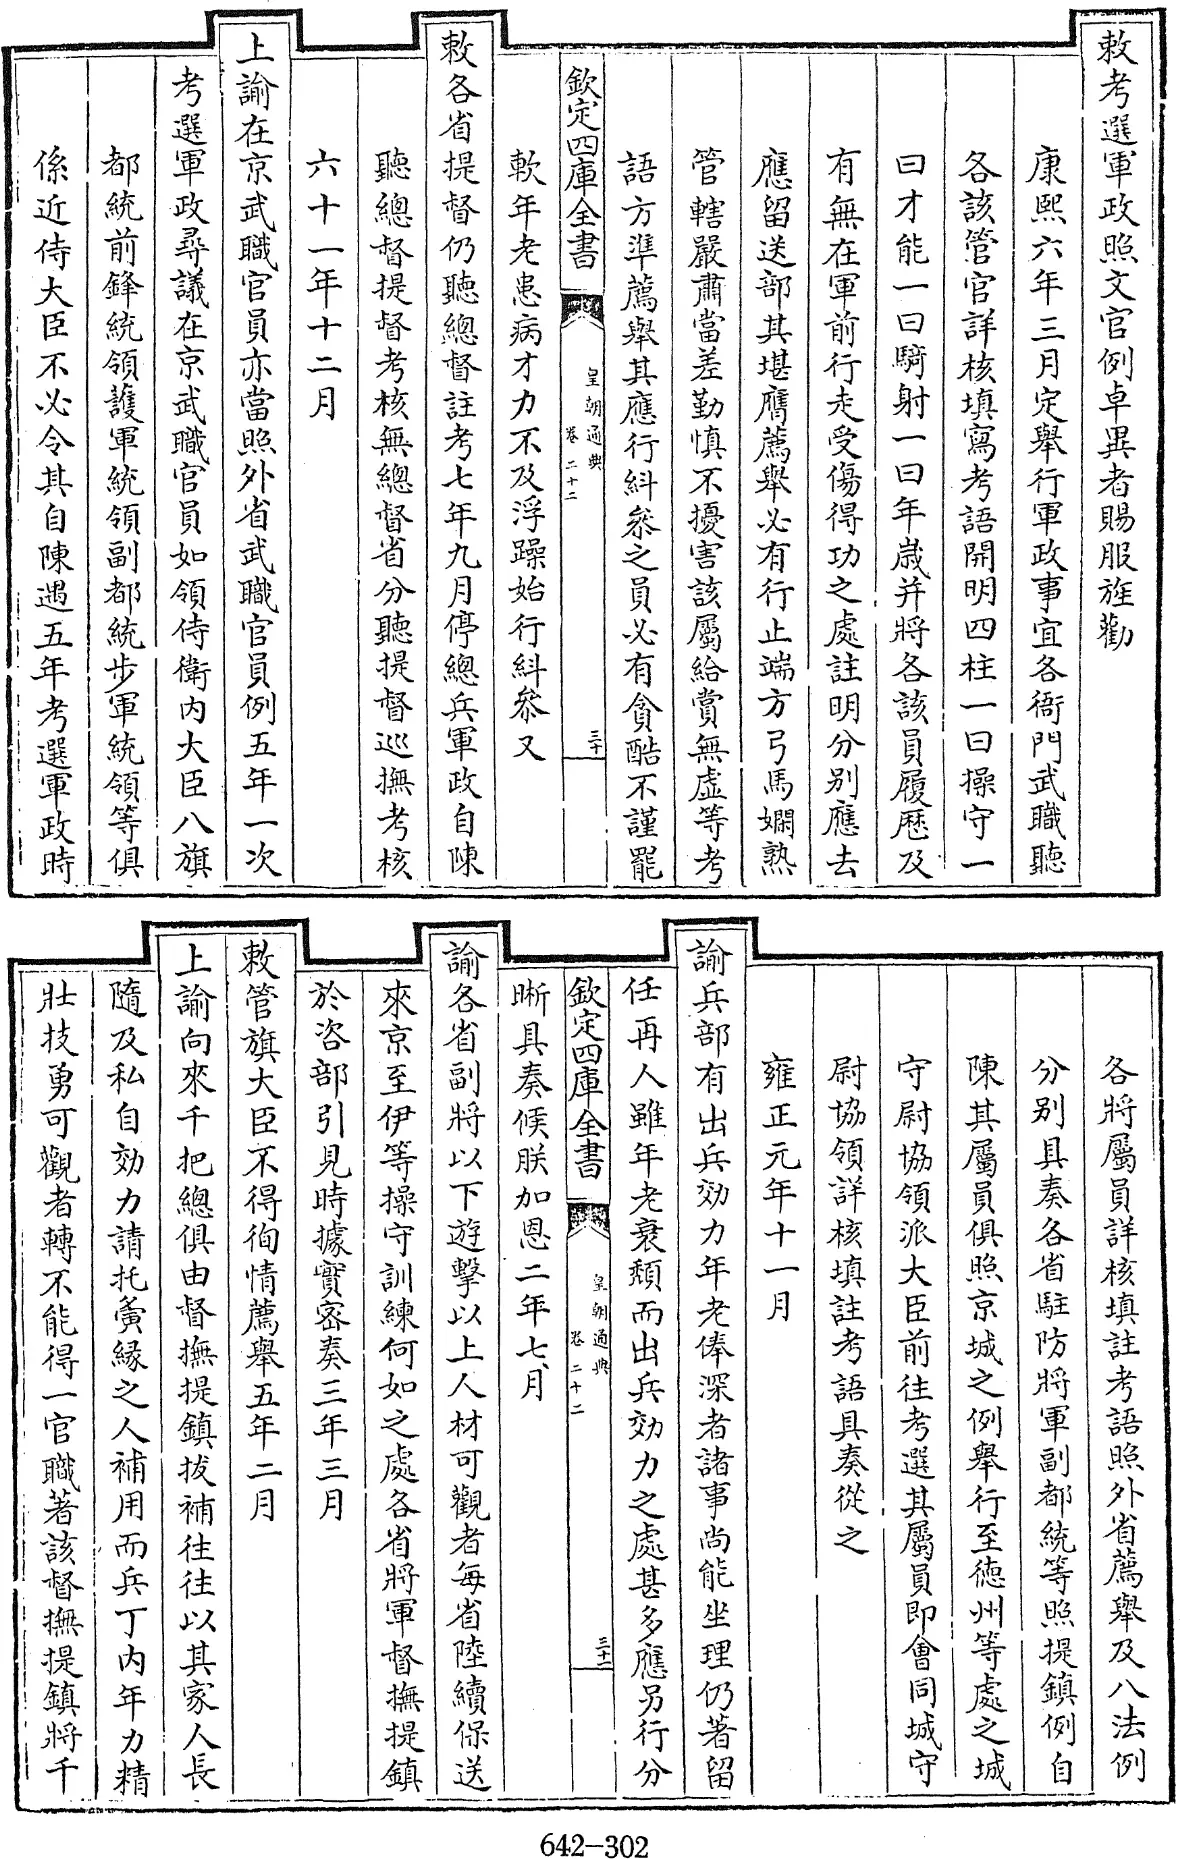 敕考選軍政照文官例卓異者賜服旌勸
康熙六年三月定舉行軍政事宜各衙門武職聽
各該管官詳核填寫考語開明四柱一曰操守一
曰才能一曰騎射一曰年歲并將各該員履歷及
有無在軍前行走受傷得功之處註明分別應去
應留送部其堪膺薦舉必有行止端方弓馬嫻熟
管轄嚴肅當差勤慎不擾害該屬給賞無虛等考
語方準薦舉其應行糾叅之員必有貪酷不謹罷
欽定四庫全書
皇朝通典
卷二十二
三十
軟年老患病才力不及浮躁始行糾叅又
敕各省提督仍聽總督註考七年九月停總兵軍政自陳
聽總督提督考核無總督省分聽提督巡撫考核
六十一年十二月
上諭在京武職官員亦當照外省武職官員例五年一次
考選軍政尋議在京武職官員如領侍衛內大臣八旗
都統前鋒統領護軍統領副都統步軍統領等俱
係近侍大臣不必令其自陳遇五年考選軍政時
各將屬員詳核填註考語照外省薦舉及八法例
分別具奏各省駐防將軍副都統等照提鎮例自
陳其屬員俱照京城之例舉行至德州等處之城
守尉協領派大臣前往考選其屬員即會同城守
尉協領詳核填註考語具奏從之
雍正元年十一月
諭兵部有出兵効力年老俸深者諸事尚能坐理仍著留
任再人雖年老衰頹而出兵効力之處甚多應另行分
欽定四庫全書
皇朝通典
卷二十二
三十一
晰具奏候朕加恩二年七月
諭各省副將以下遊擊以上人材可觀者每省陸續保送
來京至伊等操守訓練何如之處各省將軍督撫提鎮
於咨部引見時據實密奏三年三月
敕管旗大臣不得徇情薦舉五年二月
上諭向來千把總俱由督撫提鎮拔補往往以其家人長
隨及私自効力請托夤緣之人補用而兵丁內年力精
壯技勇可觀者轉不能得一官職著該督撫提鎮將千
642-302